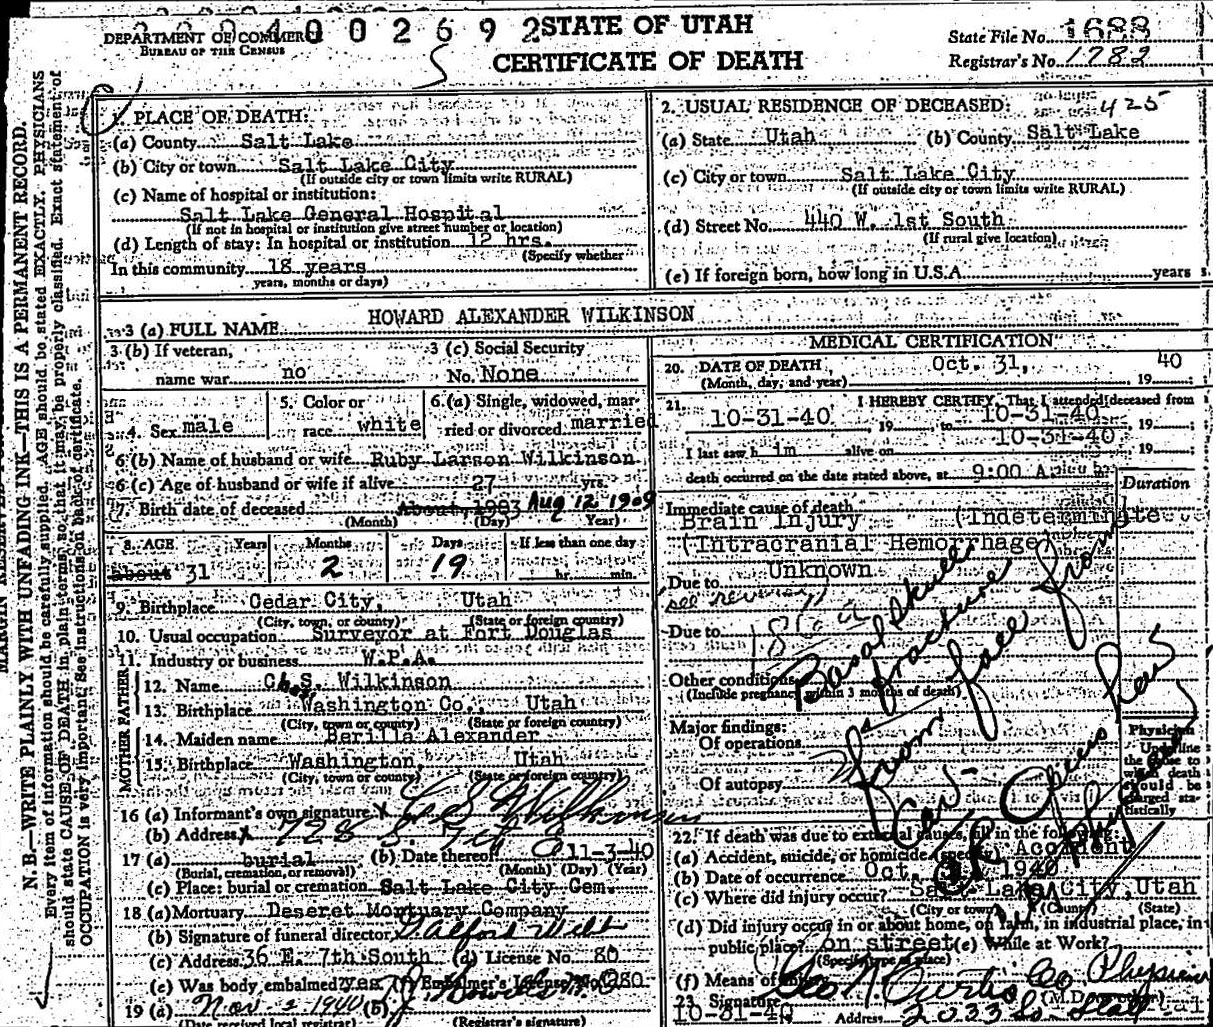 DEPARTMENT OF COMMERCE
BUREAU OF THE CENSUS
400 2692
STATE OF UTAH
CERTIFICATE OF DEATH
State File No. 1688
Registrar's No. 1782
N. B.—WRITE PLAINLY WITH UNFADING INK—THIS IS A PERMANENT RECORD.
Every item of information should be carefully supplied. AGE should be stated EXACTLY. PHYSICIANS
should state CAUSE OF DEATH in plain terms, so that it may be properly classified. Exact statement of
OCCUPATION is very important. See instructions on back of certificate.
1. PLACE OF DEATH:
(a) County Salt Lake
(b) City or town Salt Lake City
(If outside city or town limits write RURAL)
(c) Name of hospital or institution:
Salt Lake General Hospital
(If not in hospital or institution give street number or location)
(d) Length of stay: In hospital or institution 12 hrs.
(Specify whether
In this community 18 years
years, months or days)
2. USUAL RESIDENCE OF DECEASED: 425
(a) State Utah (b) County Salt Lake
(c) City or town Salt Lake City
(If outside city or town limits write RURAL)
(d) Street No. 440 W. 1st South
(If rural give location)
(e) If foreign born, how long in U.S.A. years
3 (a) FULL NAME HOWARD ALEXANDER WILKINSON
3 (b) If veteran, name war no
3 (c) Social Security No. None
4. Sex male
5. Color or race white
6. (a) Single, widowed, married or divorced married
6 (b) Name of husband or wife Ruby Larson Wilkinson
6 (c) Age of husband or wife if alive 27 yrs.
7. Birth date of deceased About 1903 Aug 12 1909
(Month) (Day) Year)
8. AGE Years Months Days If less than one day
about 31 2 19 hr. min.
9. Birthplace Cedar City, Utah
(City, town, or county) (State or foreign country)
10. Usual occupation Surveyor at Fort Douglas
11. Industry or business W.P.A.
FATHER
12. Name Chas. S. Wilkinson
13. Birthplace Washington Co., Utah
(City, town or county) (State or foreign country)
MOTHER
14. Maiden name Berilla Alexander
15. Birthplace Washington, Utah
(City, town or county) (State or foreign country)
16 (a) Informant's own signature X C S Wilkinson
(b) Address X 728 S. 7th E
17 (a) burial (b) Date thereof 11-3-40
(Burial, cremation, or removal) (Month) (Day) (Year)
(c) Place: burial or cremation Salt Lake City Cem.
18 (a) Mortuary Deseret Mortuary Company
(b) Signature of funeral director
(c) Address 36 E. 7th South (d) License No. 80
(e) Was body embalmed? yes (f) Embalmer's License No. 280
19 (a) Nov. 2 1940 (b)
(Date received local registrar) (Registrar's signature)
MEDICAL CERTIFICATION
20. DATE OF DEATH Oct. 31, 19 40
(Month, day, and year)
21. I HEREBY CERTIFY, That I attended deceased from
10-31-40, 19 to 10-31-40, 19
I last saw him alive on 10-31-40, 19
death occurred on the date stated above, at 9:00 A
Duration
Immediate cause of death
Brain Injury (Indeterminate
(Intracranial Hemorrhage)
Due to Unknown
see
Due to 186 a
Basal Skull
fracture
from fall from
Car -
Other conditions
(Include pregnancy within 3 months of death)
Major findings:
Of operations
Of autopsy
Physician
Underline the cause to which death should be charged statistically
22. If death was due to external causes, fill in the following:
(a) Accident, suicide, or homicide (specify) Accident
(b) Date of occurrence Oct. 1940
(c) Where did injury occur? Salt Lake City, Utah
(City or town) (County) (State)
(d) Did injury occur in or about home, on farm, in industrial place, in
public place? on street (e) While at Work?
(Specify type of place)
(f) Means of
23. Signature Geo N. Curtis Co Physician
(M.D.
10-31-40 19 Address 2033 So. State